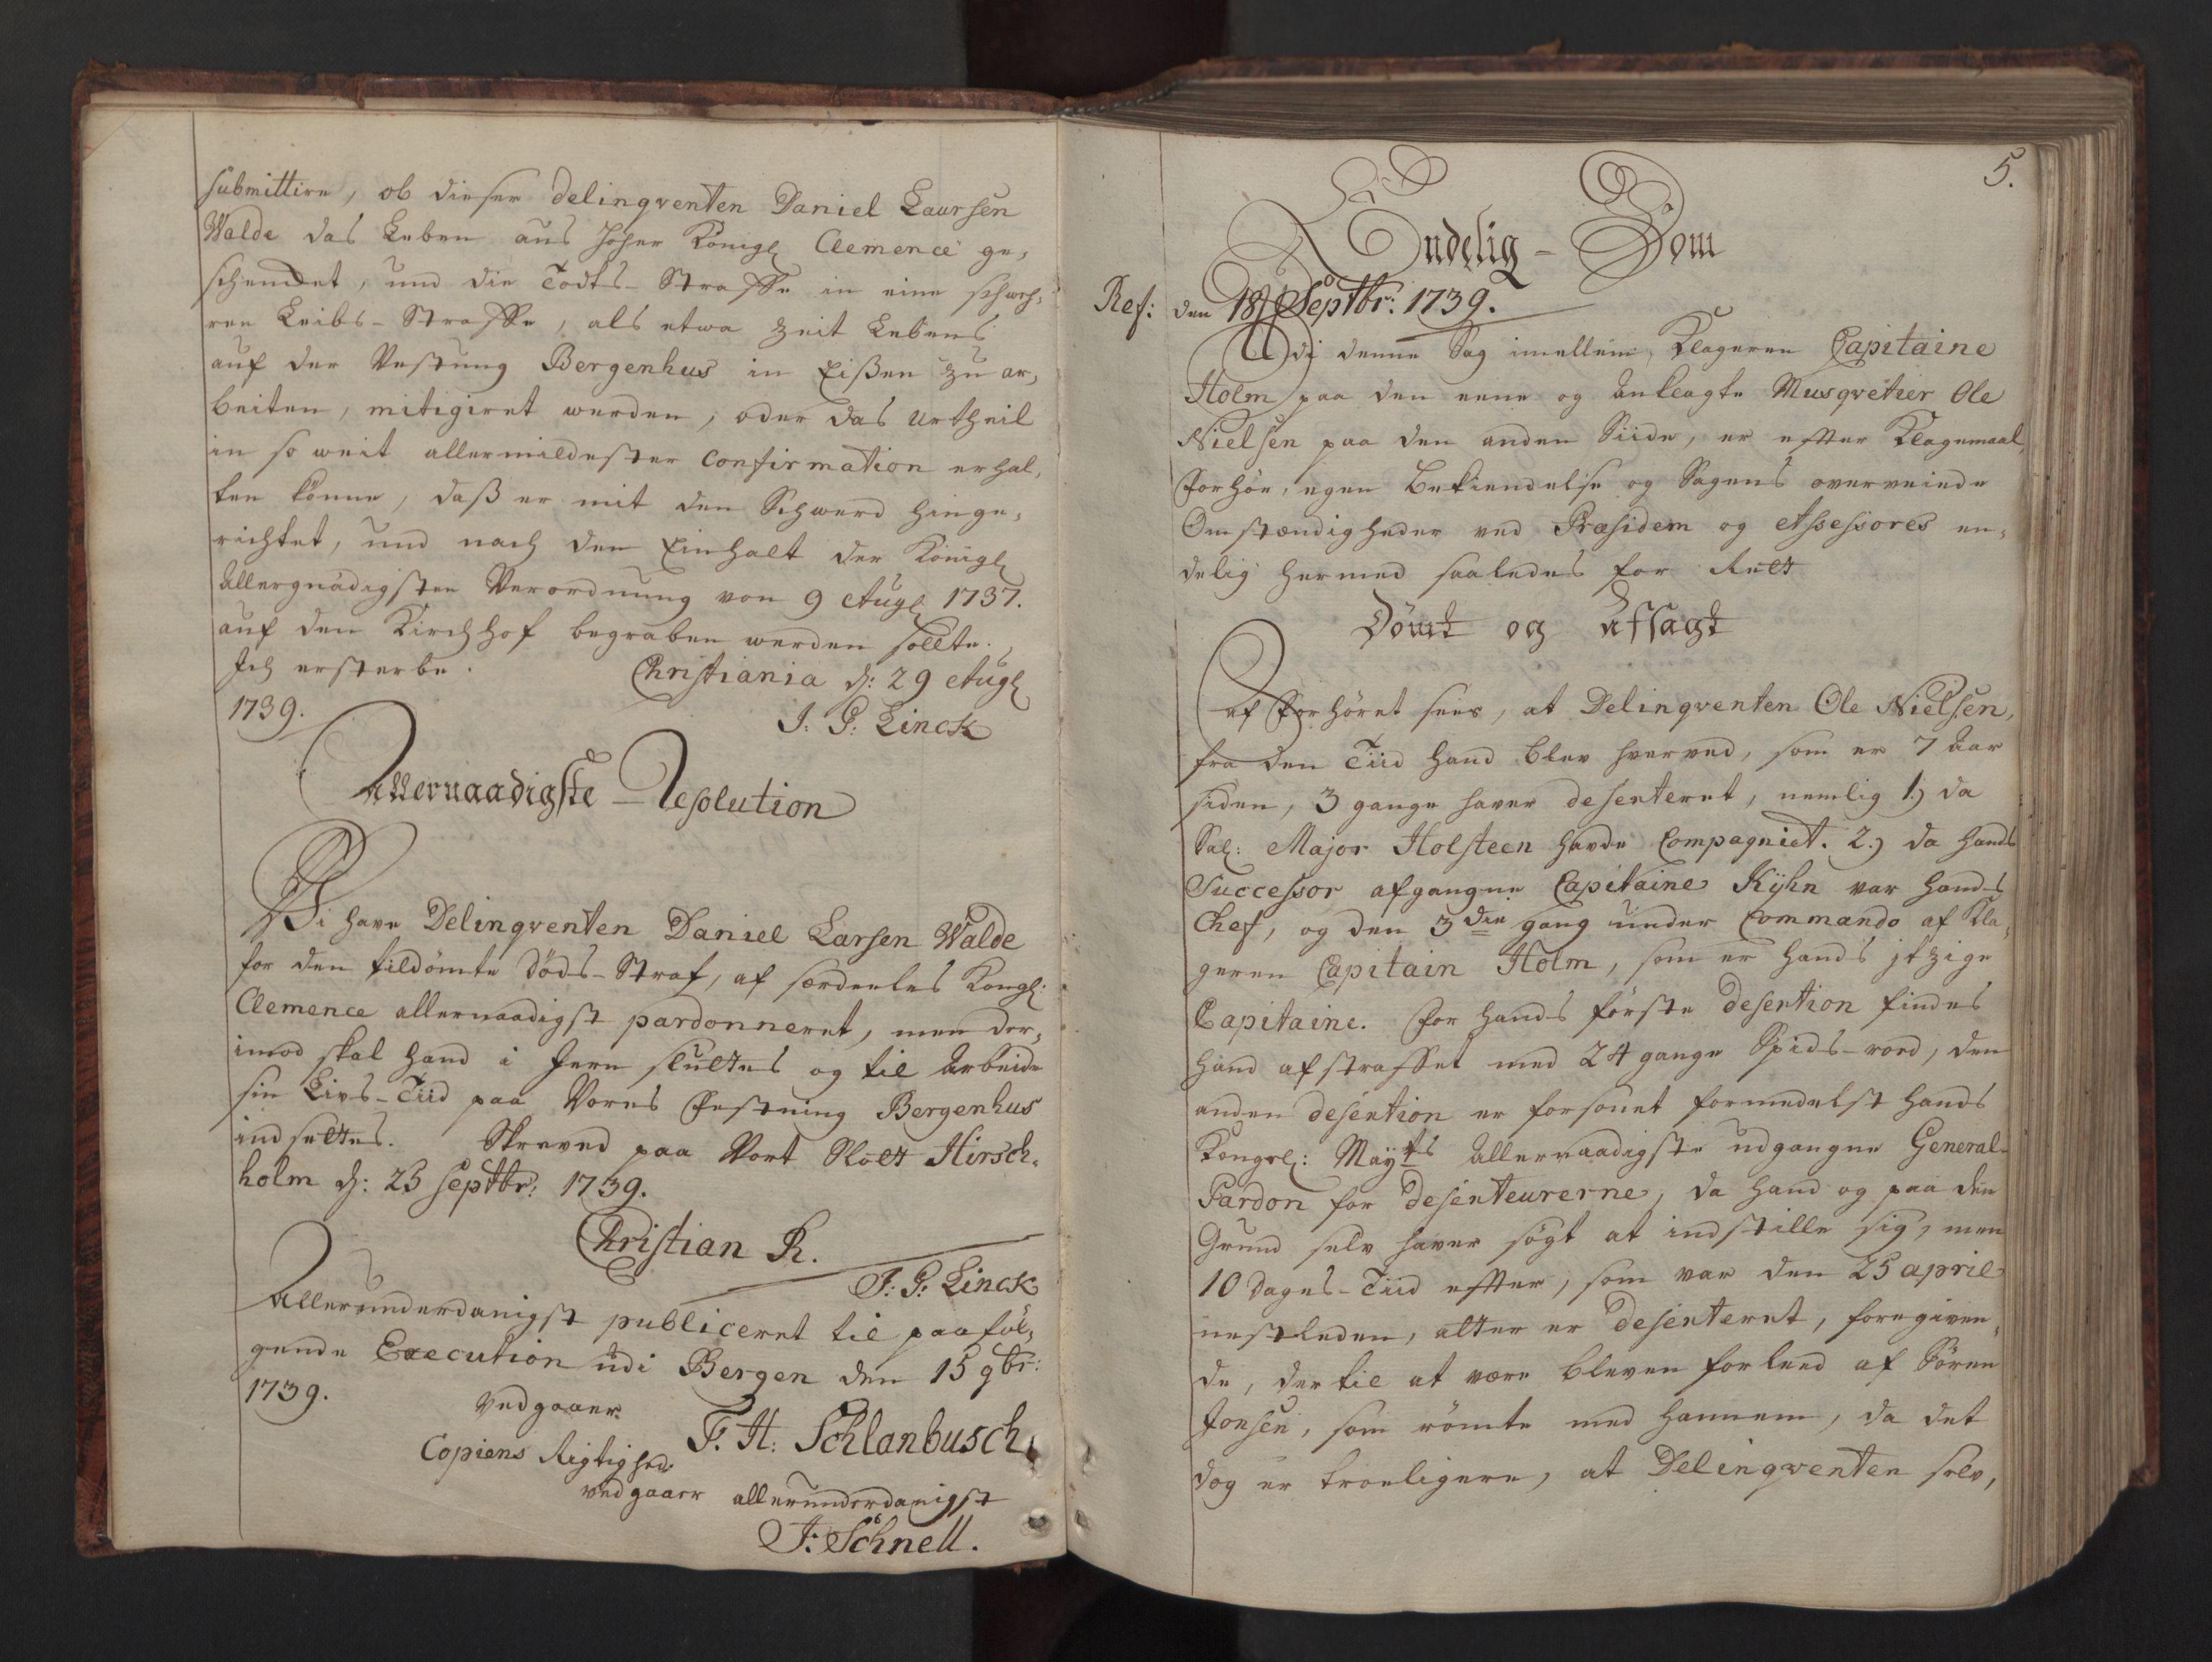 submittire, ob dieser Delinqventen Daniel Laursen
Walde das Leben aus hoher Königl Clemence ge,
schencket, und die Todts-Straffe in eine schweh,
ren Leibs-Straffe, als etwa Zeit Lebens
auf der Vestung Bergenhus in Eißen zu ar,
beiten, mitigiret werden, oder das Urtheil
in so weit allermildester Confirmation erhal,
ten könne, daß er mit den Schwerd hinge,
richtet, und nach den Einhalt der Königl
Allergnädigsten Verordnung von 9 Augl 1737.
auf den Kirchhof begraben werden sollte.
Ich ersterbe. Christiania d: 29 Augl
1739.
J: G: Linck
Allernaadigste-Resolution
Wi have Delinqventen Daniel Larsen Walde
for den tildömte Döds-Straf, af særdeeles Kongl:
Clemence allernaadigst pardonneret, men der,
imod skal hand i Jern sluttes og til Arbeide
sin Livs-Tiid paa Vores Festning Bergenhus
indsettes. Skreved paa Vort Slott Hirsch,
holm d: 23 Septbr: 1739.
Christian R.
J: G: Linck
Allerunderdanigst publiceret til paaföl,
gende Execution udi Bergen den 15 9br:
1739.
Vedgaaer
F. H: Schlanbusch,
Copiens Rigtighed
vedgaaer allerunderdanigst
J: Schnell.
5.
Endelig-Dom
Ref: den 18 Septbr: 1739.
Udi denne Sag imellem, Klageren Capitaine
Holm paa den eene og Anklagte Musqvetier Ole
Nielsen paa den anden Siide, er efter Klagemaal,
Forhör, egen Bekiendelse og Sagens overveiede
Omstændigheder ved Præsidem og Assessores en,
delig hermed saaledes for Rett
Dömt og Afsagt
Af Forhöret sees, at Delinqventen Ole Nielsen,
fra den Tiid hand blev hverved, som er 7 Aar
siden, 3 gange haver deserteret, nemlig 1.) da
Sal: Major Holsteen havde Compagniet. 2.) da hands
Successor afgangne Capitaine Kÿhn var hands
Chef, og den 3die gang under Commando af Kla,
geren Capitain Holm, som er hands jtzige
Capitaine. For hands förste Desertion findes
hand afstraffet med 24 gange Spids-rod, den
anden desertion er forsonet formedelst hands
Kongel: Maÿts Allernaadigste udgangne General-
Pardon for Deserteurerne, da hand og paa den
Grund selv haver sögt at indstille sig, men
10 Dages-Tiid efter, som var den 25 april
nestleden, atter er Deserteret, foregiven,
de, der til at være bleven forleed af Sören
Jonsen, som römte med hannem, da det
dog er troeligere, at Delinqventen selv,